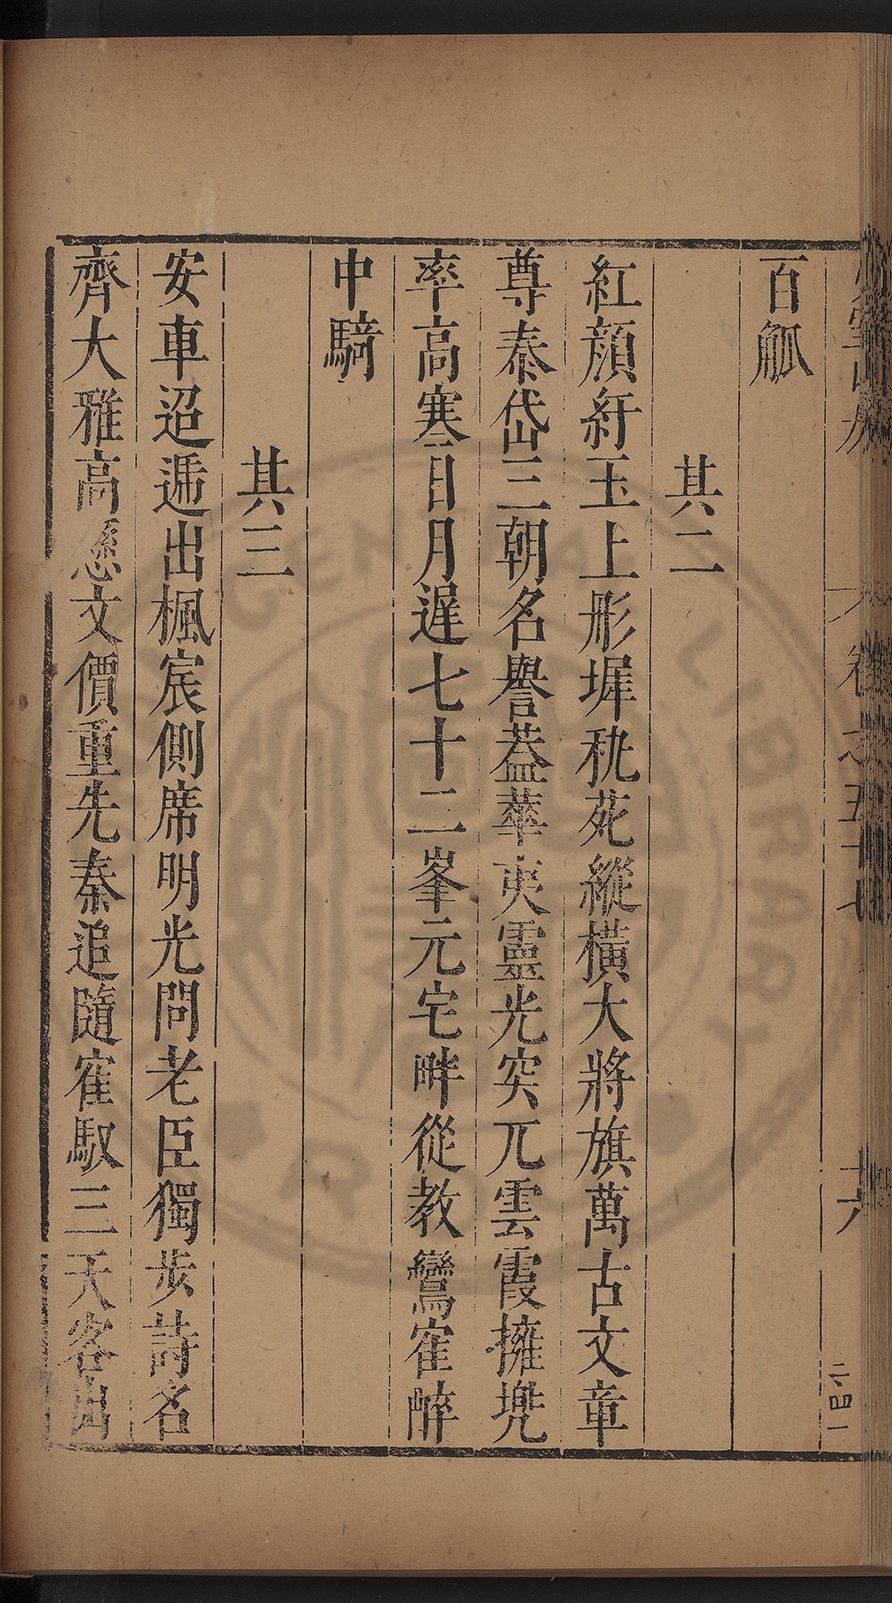 卷之五十七
二四一
百觚
其二
紅顏紆玉上彤墀秇苑縱橫大將旗萬古文章
尊泰岱三朝名譽葢華夷靈光突兀雲霞擁兠
率高寒日月遲七十二峯元宅畔從教鸞隺醉
中騎
其三
安車迢遞出楓宸側席明光問老臣獨步詩名
齊大雅高懸文價重先秦追隨隺馭三天客出